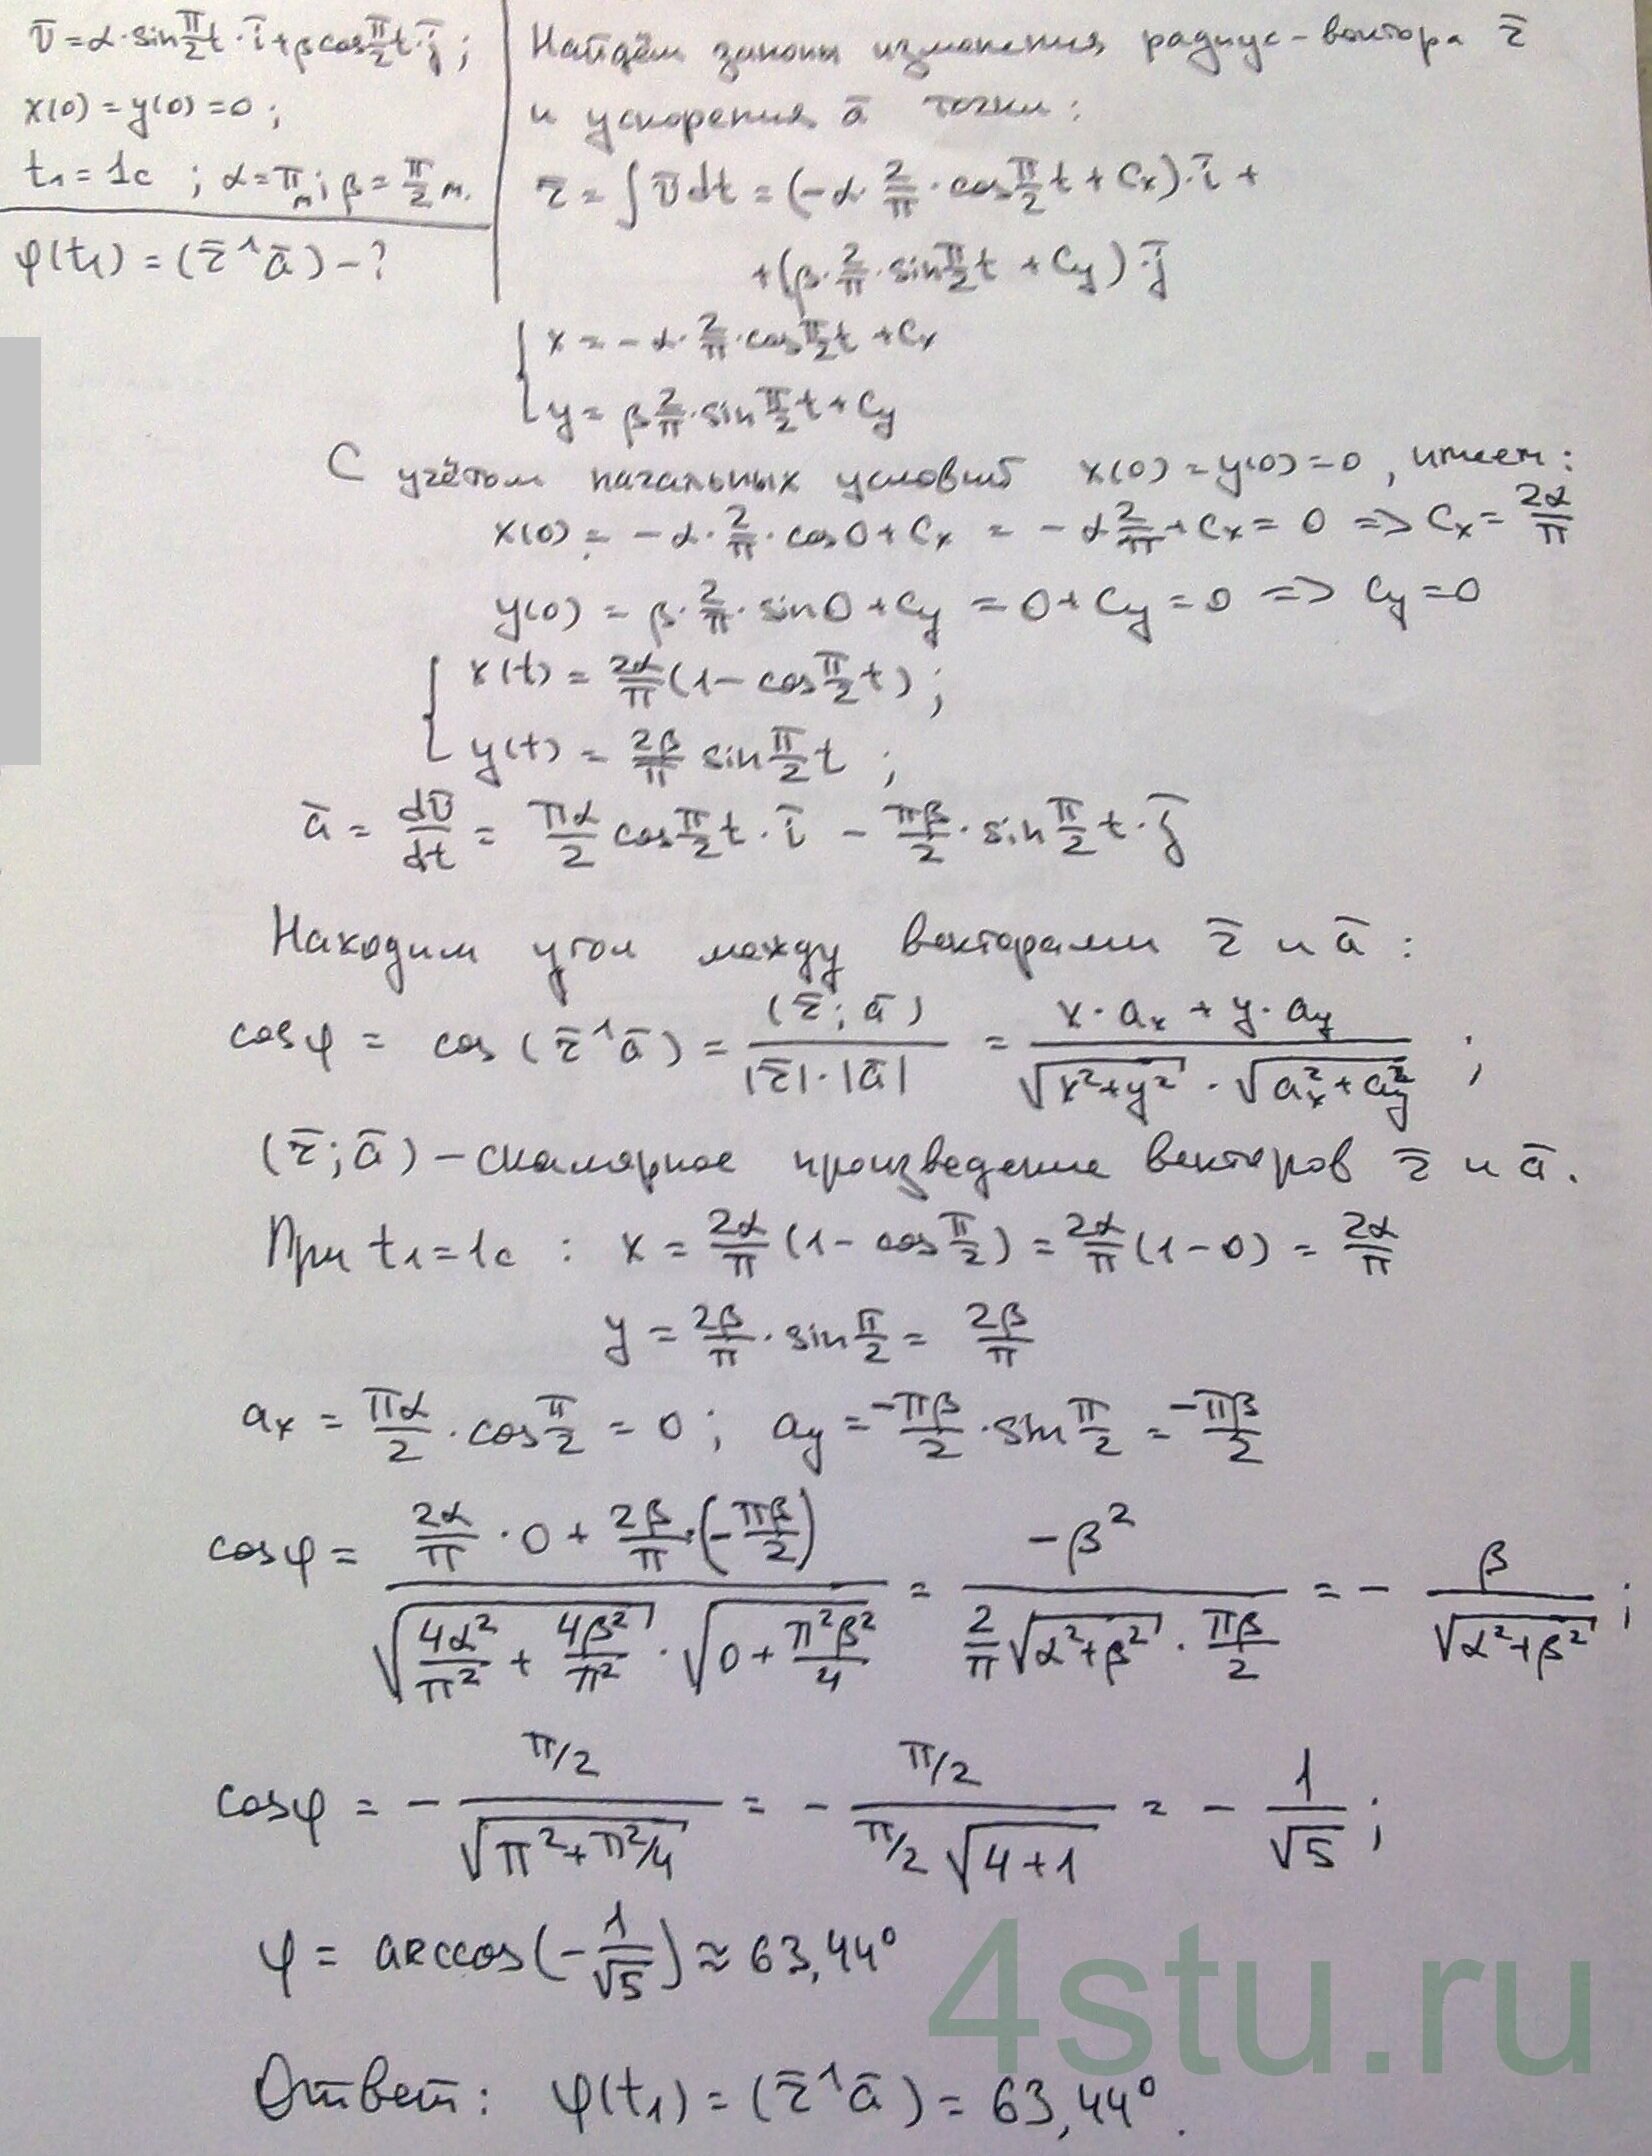 v̄ = α·sin π/2 t · ī + β cos π/2 t · j̄ ;
x(0) = y(0) = 0 ;
t₁ = 1с ; α = π м ; β = π/2 м.
φ(t₁) = (r̄ ^ ā) – ?
Найдём законы изменения радиус-вектора r̄
и ускорения ā точки :
r̄ = ∫ v̄ dt = (-α · 2/π · cos π/2 t + Cx) · ī +
+ (β · 2/π · sin π/2 t + Cy) · j̄
{ x = - α · 2/π · cos π/2 t + Cx
y = β 2/π · sin π/2 t + Cy
С учётом начальных условий x(0) = y(0) = 0 , имеем :
x(0) = - α · 2/π · cos 0 + Cx = - α 2/π + Cx = 0 => Cx = 2α/π
y(0) = β · 2/π · sin 0 + Cy = 0 + Cy = 0 => Cy = 0
{ x(t) = 2α/π (1 - cos π/2 t) ;
y(t) = 2β/π sin π/2 t ;
ā = dv̄/dt = πα/2 cos π/2 t · ī - πβ/2 · sin π/2 t · j̄
Находим угол между векторами r̄ и ā :
cosφ = cos (r̄ ^ ā) = (r̄ ; ā) / |r̄| · |ā| = x · ax + y · ay / √(x² + y²) · √(ax² + ay²) ;
(r̄ ; ā) – скалярное произведение векторов r̄ и ā.
При t₁ = 1с : x = 2α/π (1 - cos π/2) = 2α/π (1 - 0) = 2α/π
y = 2β/π · sin π/2 = 2β/π
ax = πα/2 · cos π/2 = 0 ; ay = -πβ/2 · sin π/2 = -πβ/2
cosφ = 2α/π · 0 + 2β/π · (-πβ/2) / √(4α²/π² + 4β²/π²) · √(0 + π²β²/4) = -β² / 2/π √(α² + β²) · πβ/2 = - β / √(α² + β²) ;
cosφ = - π/2 / √(π² + π²/4) = - π/2 / π/2 √(4 + 1) = - 1/√5 ;
φ = arccos(- 1/√5) ≈ 63,44°
Ответ : φ(t₁) = (r̄ ^ ā) = 63,44°.
4stu.ru